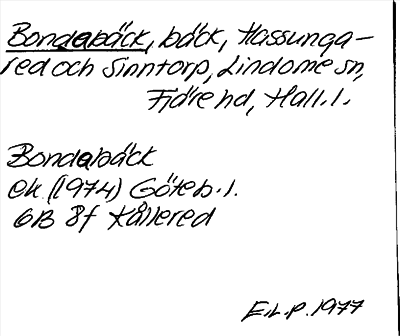 Bondabäck, bäck, Hassunga-
red och Sinntorp, Lindome sn,
Fjäre hd, Hall. l.
Bondabäck
ek. (1974) Göteb. l.
6B 8f Kållered
E.L.P. 1977